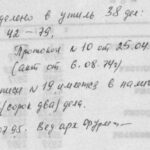 делено в утиль 38 дел:
42 – 79.
Протокол № 10 от 25.04.
(акт от 6.08.74г)
писи № 19 имеется в нали
(сорок два) дела.
07.95. Вед. арх.